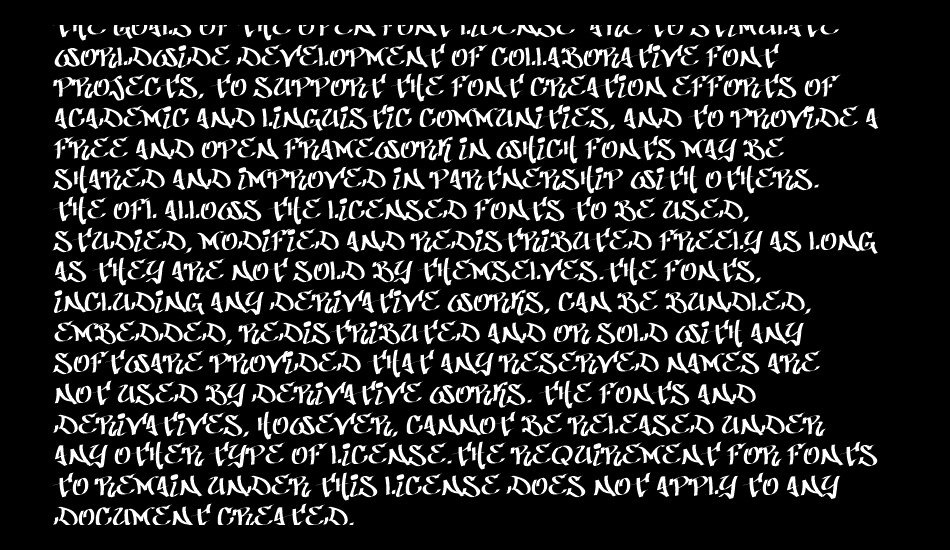 THE GOALS OF THE OPEN FONT LICENSE ARE TO STIMULATE
WORLDWIDE DEVELOPMENT OF COLLABORATIVE FONT
PROJECTS, TO SUPPORT THE FONT CREATION EFFORTS OF
ACADEMIC AND LINGUISTIC COMMUNITIES, AND TO PROVIDE A
FREE AND OPEN FRAMEWORK IN WHICH FONTS MAY BE
SHARED AND IMPROVED IN PARTNERSHIP WITH OTHERS.
THE OFL ALLOWS THE LICENSED FONTS TO BE USED,
STUDIED, MODIFIED AND REDISTRIBUTED FREELY AS LONG
AS THEY ARE NOT SOLD BY THEMSELVES. THE FONTS,
INCLUDING ANY DERIVATIVE WORKS, CAN BE BUNDLED,
EMBEDDED, REDISTRIBUTED AND OR SOLD WITH ANY
SOFTWARE PROVIDED THAT ANY RESERVED NAMES ARE
NOT USED BY DERIVATIVE WORKS. THE FONTS AND
DERIVATIVES, HOWEVER, CANNOT BE RELEASED UNDER
ANY OTHER TYPE OF LICENSE. THE REQUIREMENT FOR FONTS
TO REMAIN UNDER THIS LICENSE DOES NOT APPLY TO ANY
DOCUMENT CREATED.